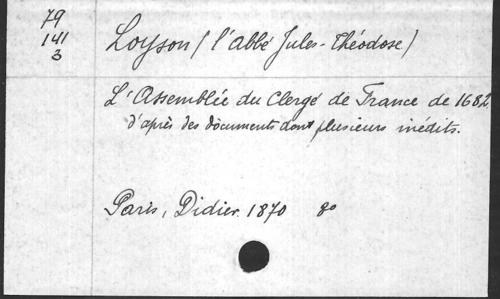 79
141
3
Loyson (l'abbé Jules-Théodose)
L'Assemblée du Clergé de France de 1682
d'après des documents dont plusieurs inédits.
Paris, Didier. 1870 8o